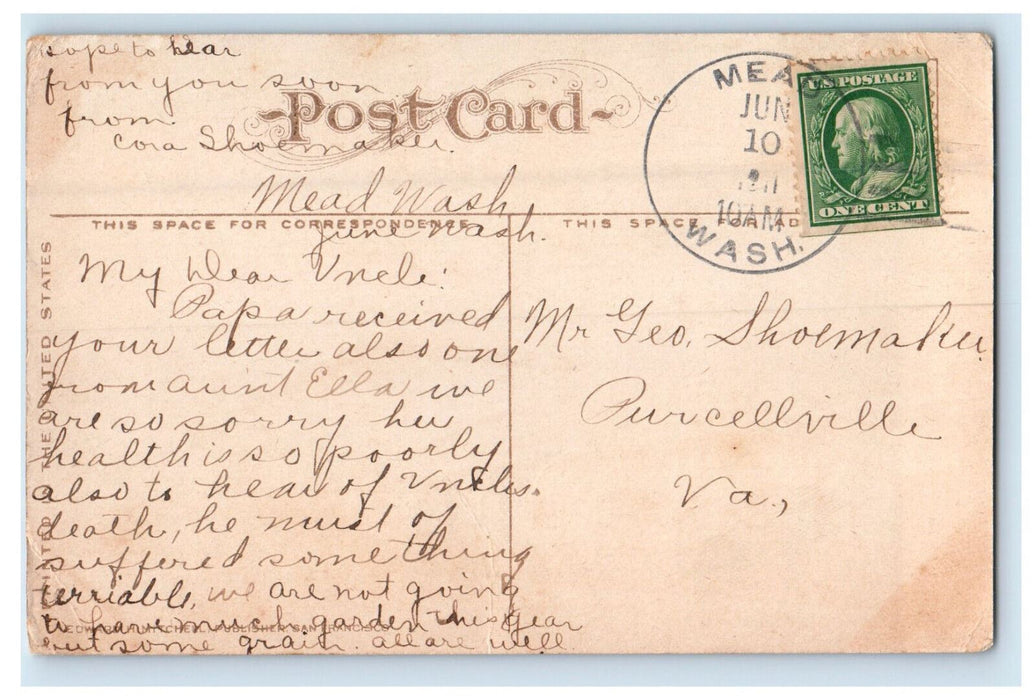 hope to hear
from you soon
from
Cora Shoemaker.
Post Card
Mead Wash
THIS SPACE FOR CORRESPONDENCE
June Wash.
My Dear Uncle:
Papa received
your letter also one
from aunt Ella we
are so sorry her
health is so poorly
also to hear of Uncles.
death, he must of
suffered something
terriable, we are not going
to have much garden this year
but some grain. all are well.
THE UNITED STATES
EDWARD H. MITCHELL, PUBLISHER, SAN FRANCISCO
MEAD
JUN
10
10AM
WASH.
U.S. POSTAGE
ONE CENT
THIS SPACE FOR
Mr Geo. Shoemaker
Purcellville
Va.,